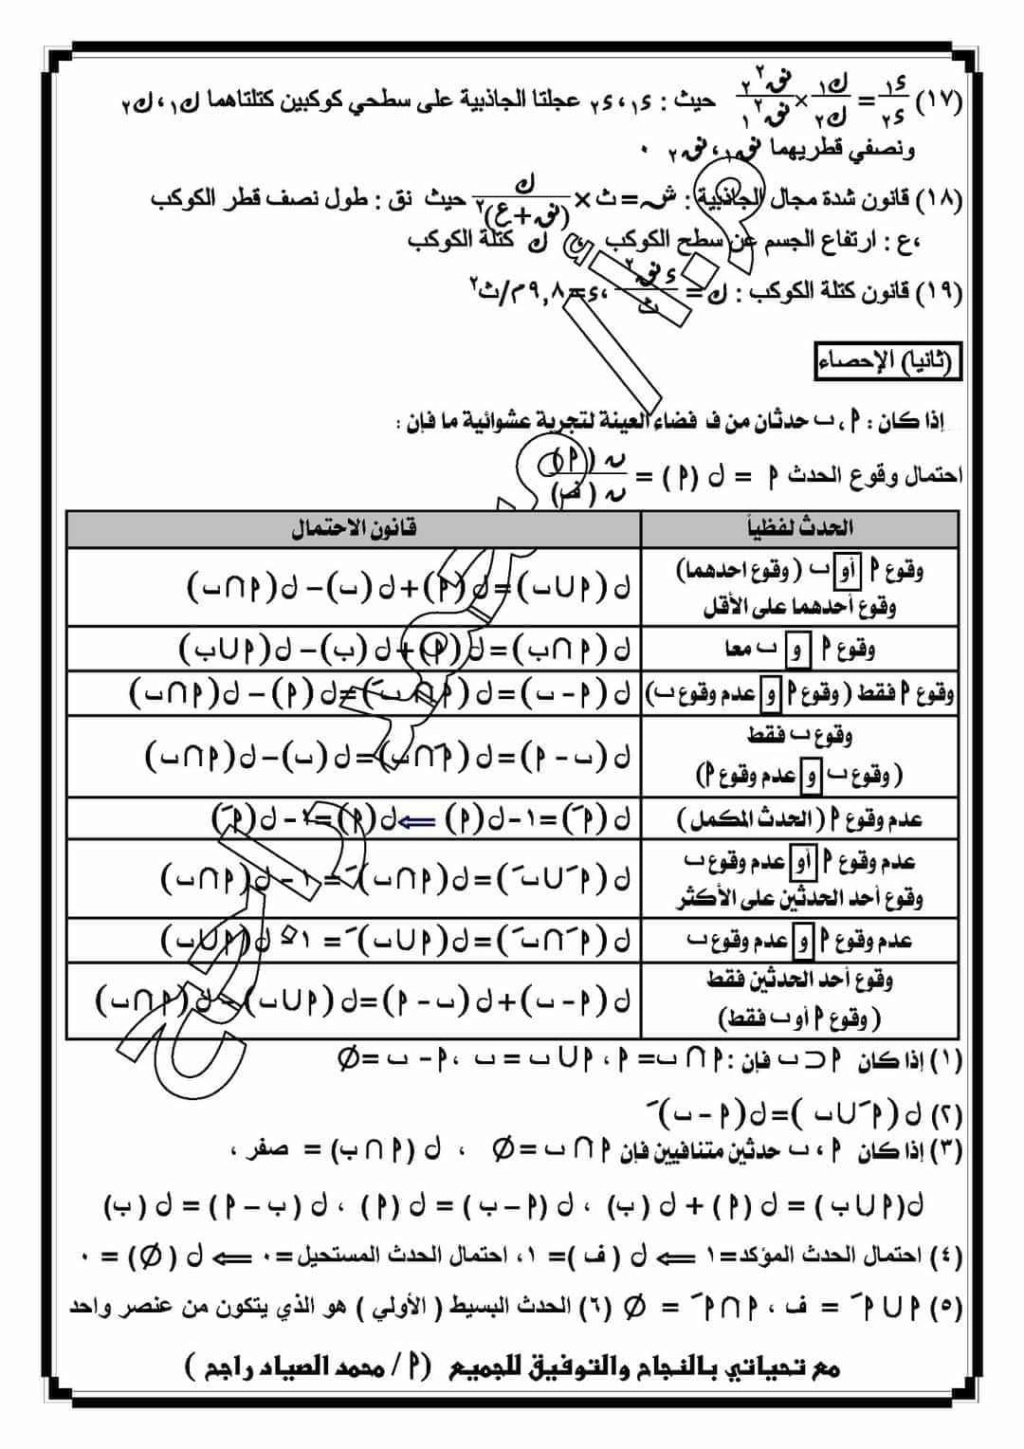 (١٧) ء١/ء٢ = ك١/ك٢ × نق٢²/نق١² حيث : ء١،ء٢ عجلتا الجاذبية على سطحي كوكبين كتلتاهما ك١،ك٢
ونصفي قطريهما نق١، نق٢ ٠
(١٨) قانون شدة مجال الجاذبية : ش = ث × ك/(نق+ع)² حيث نق : طول نصف قطر الكوكب
،ع : ارتفاع الجسم عن سطح الكوكب ، ك كتلة الكوكب
(١٩) قانون كتلة الكوكب : ك = ء نق²/ث ،ء=٩,٨م/ث²
(ثانيا) الإحصاء
إذا كان : ا ، ب حدثان من ف فضاء العينة لتجربة عشوائية ما فإن :
احتمال وقوع الحدث ا = ل (ا) = ن (ا)/ن (ف)
الحدث لفظياً
قانون الاحتمال
وقوع ا أو ب ( وقوع احدهما)
وقوع أحدهما على الأقل
ل (ا∪ب)=ل(ا)+ل(ب)−ل(ا∩ب)
وقوع ا و ب معا
ل (ا∩ب)=ل(ا)+ل(ب)−ل(ا∪ب)
وقوع ا فقط ( وقوع ا و عدم وقوع ب)
ل (ا− ب)=ل(ا∩بَ)=ل(ا)−ل(ا∩ب)
وقوع ب فقط
( وقوع ب و عدم وقوع ا)
ل (ب − ا)=ل(اَ∩ب)=ل(ب)−ل(ا∩ب)
عدم وقوع ا ( الحدث المكمل )
ل (اَ)=١−ل(ا) ⇐ ل(ا)=١−ل(اَ)
عدم وقوع ا أو عدم وقوع ب
وقوع أحد الحدثين على الأكثر
ل (اَ∪بَ)=ل(ا∩ب)َ= ١− ل(ا∩ب)
عدم وقوع ا و عدم وقوع ب
ل (اَ∩بَ)=ل(ا∪ب)َ= ١− ل(ا∪ب)
وقوع أحد الحدثين فقط
( وقوع ا أو ب فقط)
ل (ا− ب)+ل(ب − ا)=ل(ا∪ب)−ل(ا∩ب)
(١) إذا كان ا⊂ب فإن :ا∩ب=ا ، ا∪ب = ب ، ا− ب =∅
(٢) ل (اَ∪ب )=ل(ا− بَ)َ
(٣) إذا كان ا ، ب حدثين متنافيين فإن ا∩ب =∅ ، ل (ا∩ب) = صفر ،
ل(ا∪ب ) = ل (ا) + ل (ب) ، ل (ا− ب ) = ل (ا ) ، ل ( ب − ا ) = ل ( ب)
(٤) احتمال الحدث المؤكد=١ ⇐ ل ( ف )= ١، احتمال الحدث المستحيل=٠ ⇐ ل (∅) = ٠
(٥) ا∪اَ = ف ، ا∩اَ = ∅ (٦) الحدث البسيط ( الأولي ) هو الذي يتكون من عنصر واحد
مع تحياتي بالنجاح والتوفيق للجميع (ا / محمد الصياد راجح )